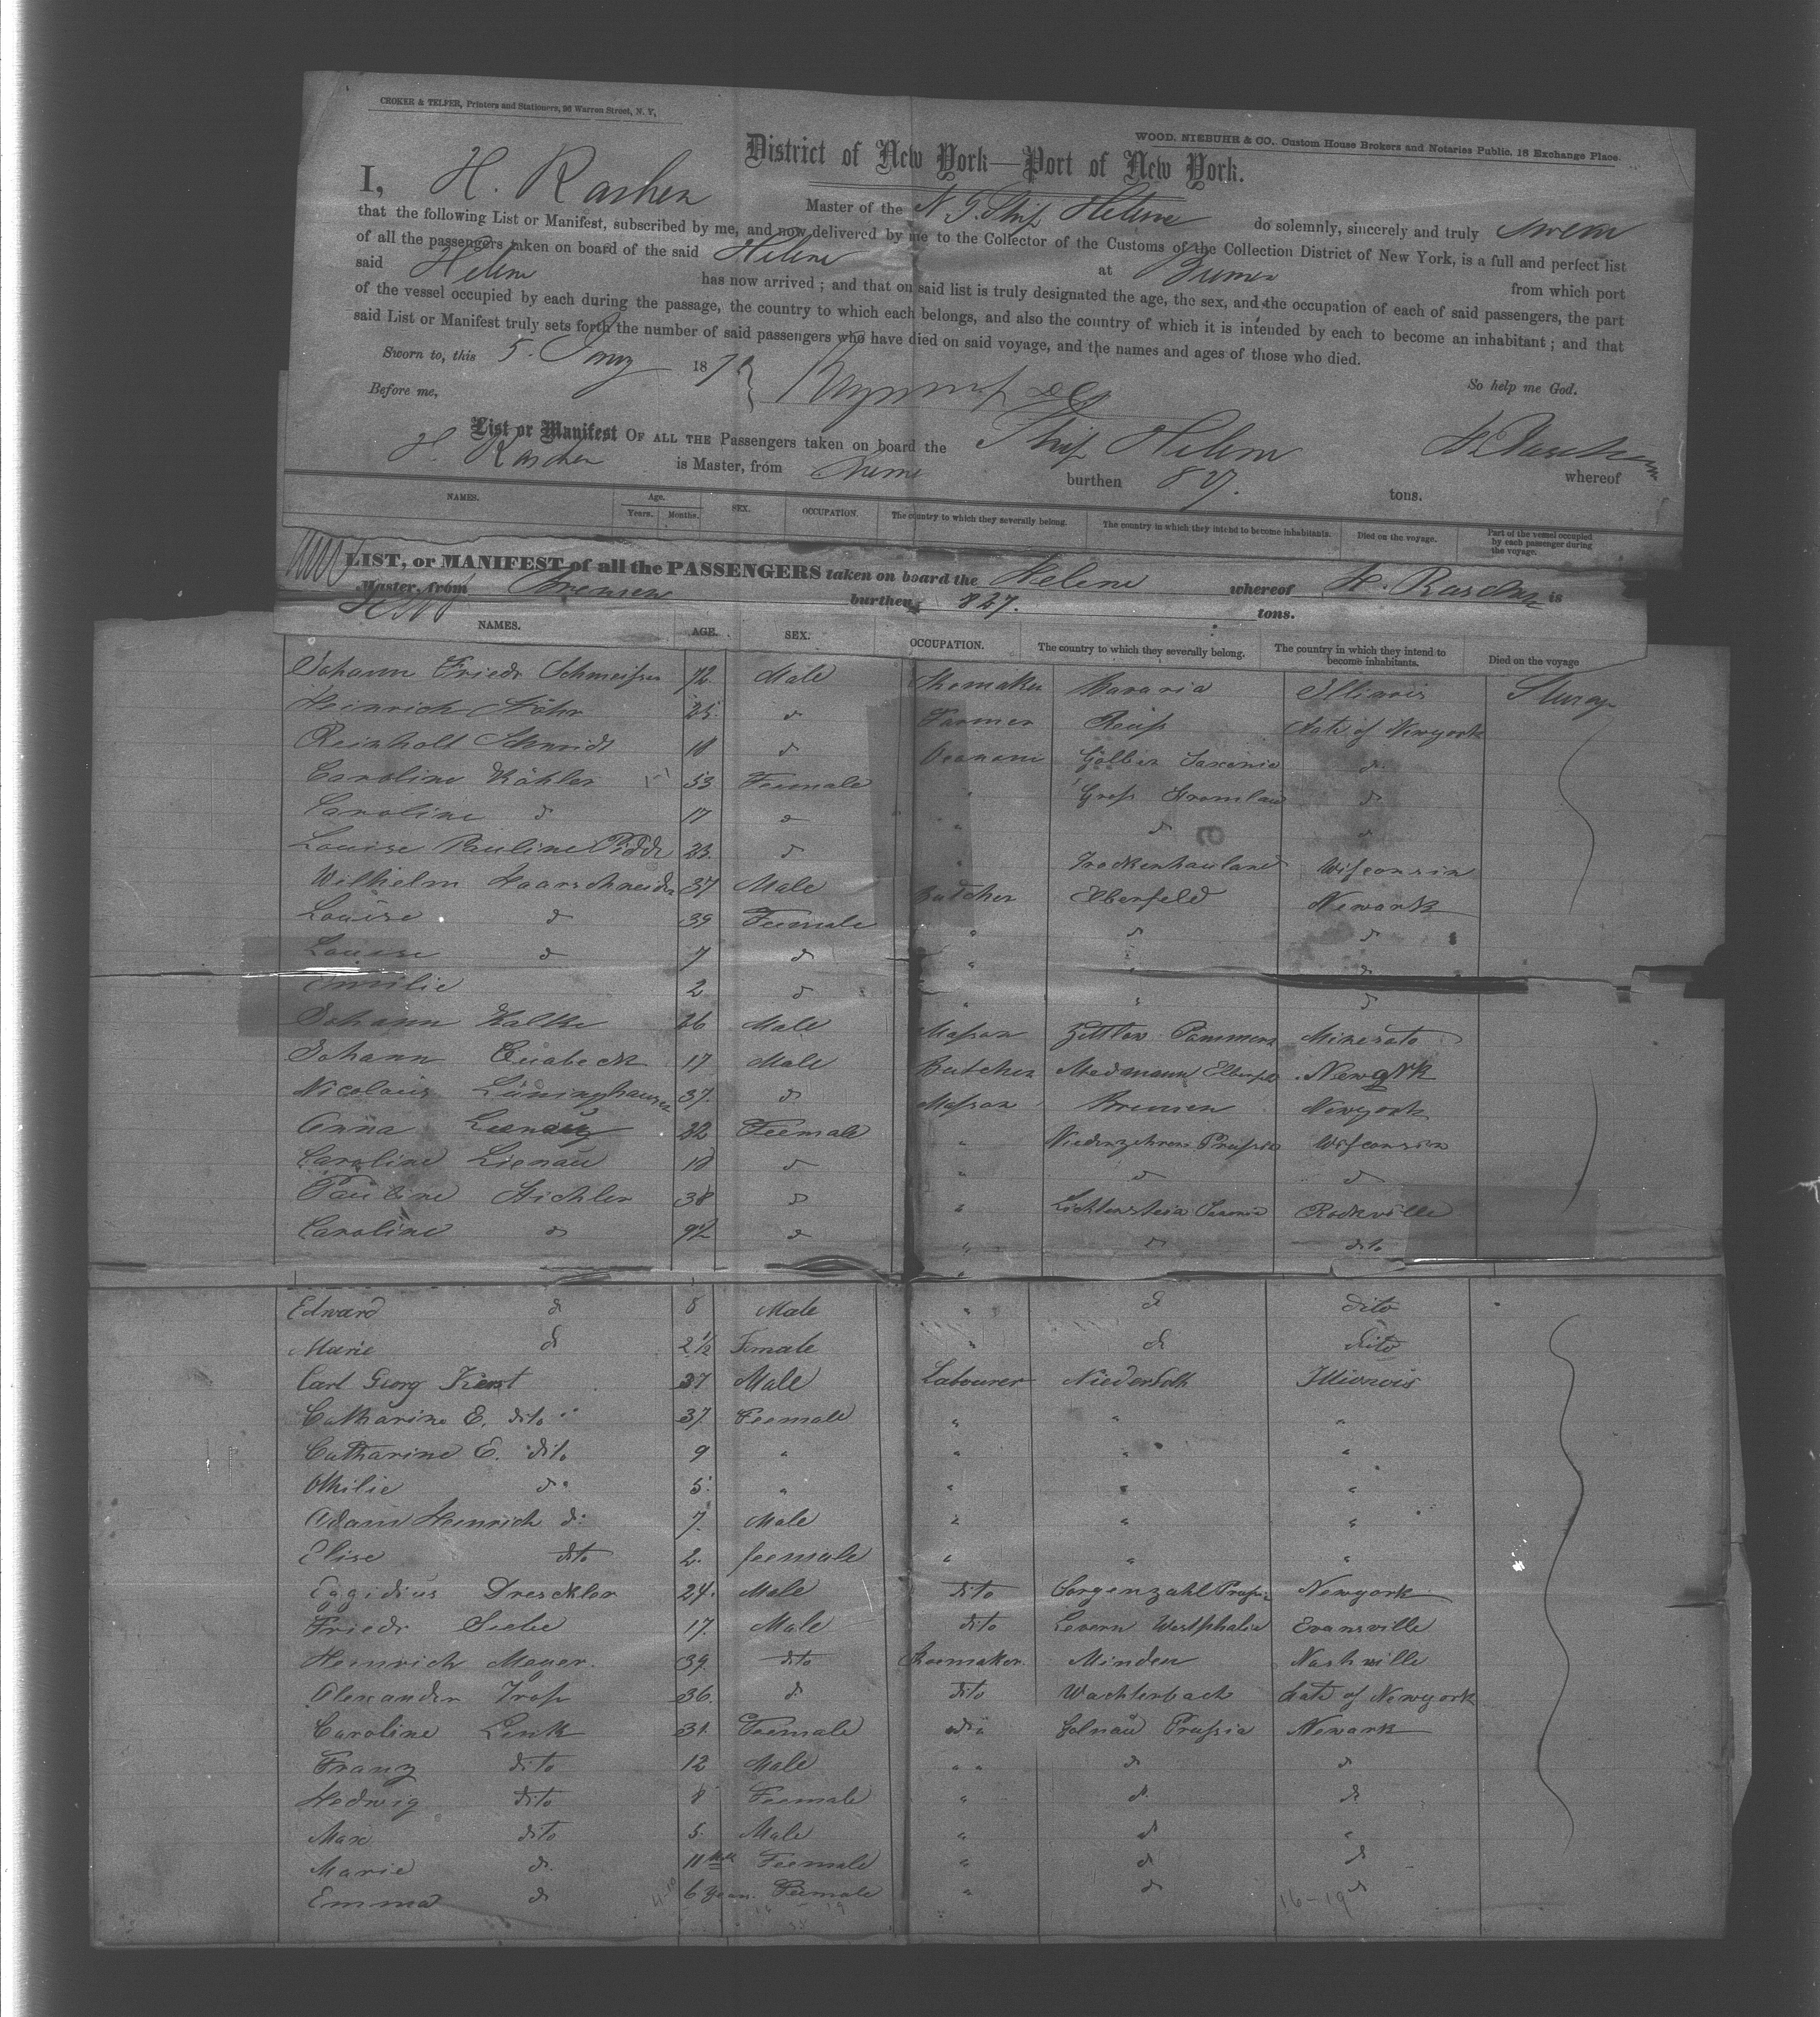 CROKER & TELFER, Printers and Stationers, 96 Warren Street, N. Y.
WOOD, NIEBUHR & CO., Custom House Brokers and Notaries Public, 18 Exchange Place.
District of New York—Port of New York.
I, H. Raschen Master of the N. G. Ship Helene do solemnly, sincerely and truly swear
that the following List or Manifest, subscribed by me, and now delivered by me to the Collector of the Customs of the Collection District of New York, is a full and perfect list
of all the passengers taken on board of the said Helene at Bremen from which port
said Helene has now arrived; and that on said list is truly designated the age, the sex, and the occupation of each of said passengers, the part
of the vessel occupied by each during the passage, the country to which each belongs, and also the country of which it is intended by each to become an inhabitant; and that
said List or Manifest truly sets forth the number of said passengers who have died on said voyage, and the names and ages of those who died.
Sworn to, this 5. 187 So help me God.
Before me,
List or Manifest OF ALL THE Passengers taken on board the Ship Helene whereof
H. Raschen is Master, from Bremen burthen 827. tons.
NAMES. Age. Years. Months. SEX. OCCUPATION. The country to which they severally belong. The country in which they intend to become inhabitants. Died on the voyage. Part of the vessel occupied by each passenger during the voyage.
LIST, or MANIFEST of all the PASSENGERS taken on board the Helene whereof H. Raschen is
Master, from Bremen burthen 827. tons.
NAMES. AGE. SEX. OCCUPATION. The country to which they severally belong. The country in which they intend to become inhabitants. Died on the voyage
Johann Friedr Schmeisser Male Shemaker Bavaria Illinois
Heinrich Höhr 25. d Farmer Reuss State of Newyork
Reinholt Schmidt 18 d Saxonia d
Caroline Köhler 53 Feemale " Gross d
Caroline d 17 d " d d
Louise Pauline 23. d " Wisconsin
Wilhelm Haarschneider 37 Male Butcher Elberfeld Newark
Louise d 39 Feemale " d d
Louise d 7 d " " d
Emilie 2 d " " d
Johann Halke 26 Male Masson Pommern
Johann Quabeck 17 Male Butcher Elberfeld Newyork
Nicolaus Lüninghausen 37. d Masson Bremen Newyork
Anna Lienau 32 Feemale " Prussia Wisconsin
Caroline Lienau 18 d " d d
Pauline Hichler 38 d " Lichtenstein Saxonia Rockville
Caroline d 9½ d " d dito
Edward d 8 Male " d dito
Marie d 2½ Female " d dito
Carl Georg Kent 37 Male Labourer Illionois
Catharine E. dito 37. Feemale " " "
Catharine E. dito 9 " " " "
Othilie d 5 " " " "
Adam Heinrich d 7. Male " " "
Elise dito 2. feemale " " "
Eggidius Dresckler 24. Male dito Newyork
Friedr Siebe 17 Male dito Levern Westphalia Evansville
Heinrich Meyer. 39. dito Shoemaker Minden Nashville
Alexander Tross 36. d dito Wachterbach State of Newyork
Caroline Lenk 31. Feemale Prussia Newark
Franz dito 12 Male " d d
Hedwig dito 8 Feemale " d d
Max dito 5. Male " d "
Marie d 11 Mth Feemale " d d
Emma d 6 Years. Feemale " d d
16-19